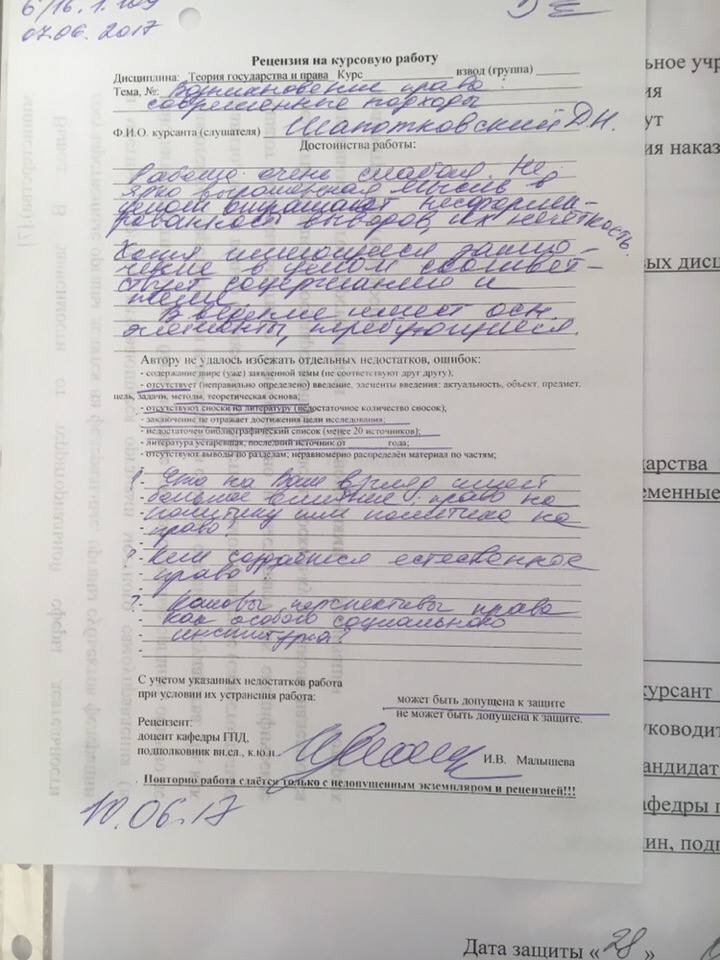 6/16.1.109
07.06.2017
Рецензия на курсовую работу
Дисциплина: Теория государства и права Курс взвод (группа)
Тема, №: Возникновение права:
современные подходы
Ф.И.О. курсанта (слушателя) Шапотковский Д.Н.
Достоинства работы:
Работа очень слабая. Не
ярко мысль в
целом несформи-
рованность выводов, их нечёткость.
Хотя имеющееся заклю-
чение в целом соответ-
ствует содержанию и
теме.
Введение имеет осн.
элементы, требующиеся.
Автору не удалось избежать отдельных недостатков, ошибок:
- содержание шире (уже) заявленной темы (не соответствуют друг другу);
- отсутствует (неправильно определено) введение, элементы введения: актуальность, объект, предмет,
цель, задачи, методы, теоретическая основа;
- отсутствуют сноски на литературу (недостаточное количество сносок);
- заключение не отражает достижения цели исследования;
- недостаточен библиографический список (менее 20 источников);
- литература устаревшая, последний источник от года;
- отсутствуют выводы по разделам; неравномерно распределён материал по частям;
? Что на Ваш взгляд имеет
большое влияние: право на
политику или политика на
право?
? Кем создаётся естественное
право
? Каковы перспективы права
как особого социального
института?
С учетом указанных недостатков работа
при условии их устранения работа:
может быть допущена к защите
не может быть допущена к защите.
Рецензент:
доцент кафедры ГПД,
подполковник вн.сл., к.ю.н., И.В. Малышева
Повторно работа сдаётся только с недопущенным экземпляром и рецензией!!!
10.06.17
льное учр
ия
ут
ия наказ
вых дисц
дарства
еменные
курсант
уководит
андидат
афедры г
ин, подп
Дата защиты «28»